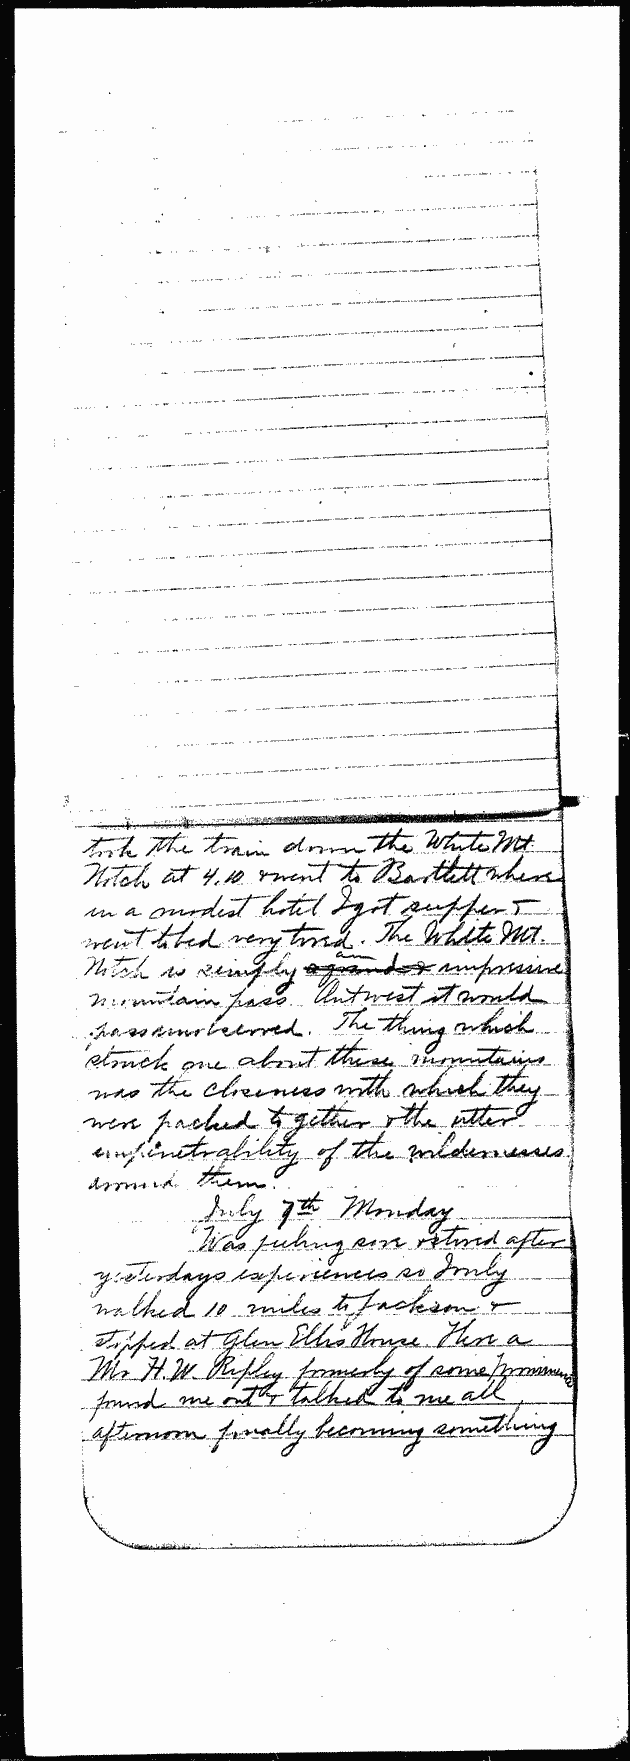 took the train down the White Mt.
Notch at 4.10 & went to Bartlett where
in a modest hotel I got supper &
went to bed very tired. The White Mt.
Notch is simply a grand & an impressive
mountain pass. Out west it would
pass unobserved. The thing which
struck me about these mountains
was the closeness with which they
were packed together & the utter
impenetrability of the wildernesses
around them.
July 7th Monday
Was feeling sore & tired after
yesterdays experiences so I only
walked 10 miles to Jackson &
stopped at Glen Ellis House. Here a
Mr H. W. Ripley formerly of some prominence
found me out & talked to me all
afternoon finally becoming something